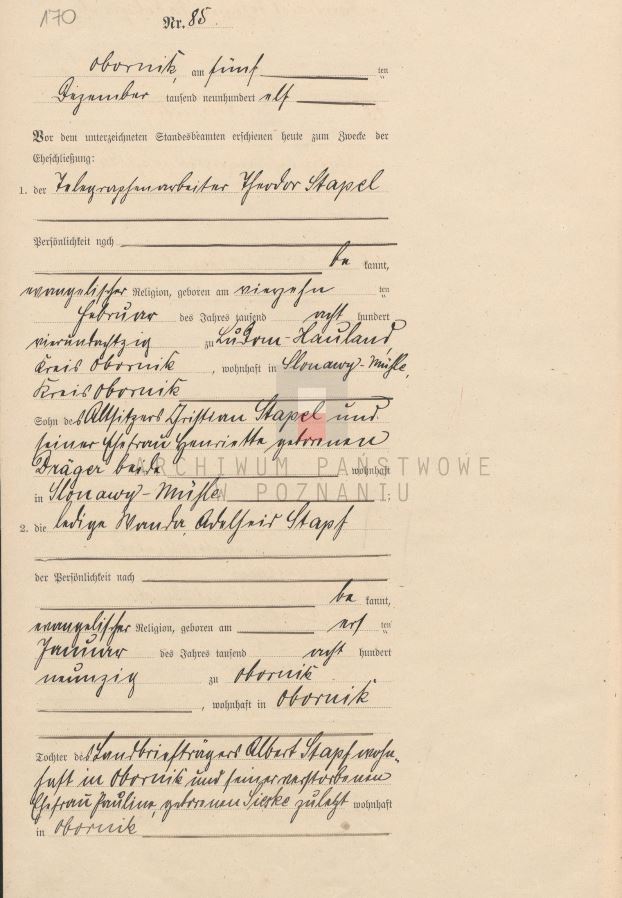 170
Nr. 85.
Obornik, am fünf ten
Dezember tausend neunhundert elf
Vor dem unterzeichneten Standesbeamten erschienen heute zum Zwecke der
Eheschließung:
1. der Telegraphenarbeiter Theodor Stapel
Persönlichkeit nach
be kannt,
evangelischer Religion, geboren am vierzehn ten
Februar des Jahres tausend acht hundert
vierundachtzig zu Ludom-Hauland
Kreis Obornik , wohnhaft in Slonawy-Mühle,
Kreis Obornik
Sohn des Altsitzers Christian Stapel und
seiner Ehefrau Henriette geborenen
Dräger beide wohnhaft
in Slonawy-Mühle ;
2. die ledige Wanda Adelheid Stapf
der Persönlichkeit nach
be kannt,
evangelischer Religion, geboren am ers ten
Januar des Jahres tausend acht hundert
neunzig zu Obornik
, wohnhaft in Obornik
Tochter des Landbriefträgers Albert Stapf wohn-
haft in Obornik und seiner verstorbenen
Ehefrau Pauline, geborenen Sieske zuletzt wohnhaft
in Obornik
ARCHIWUM PAŃSTWOWE
W POZNANIU